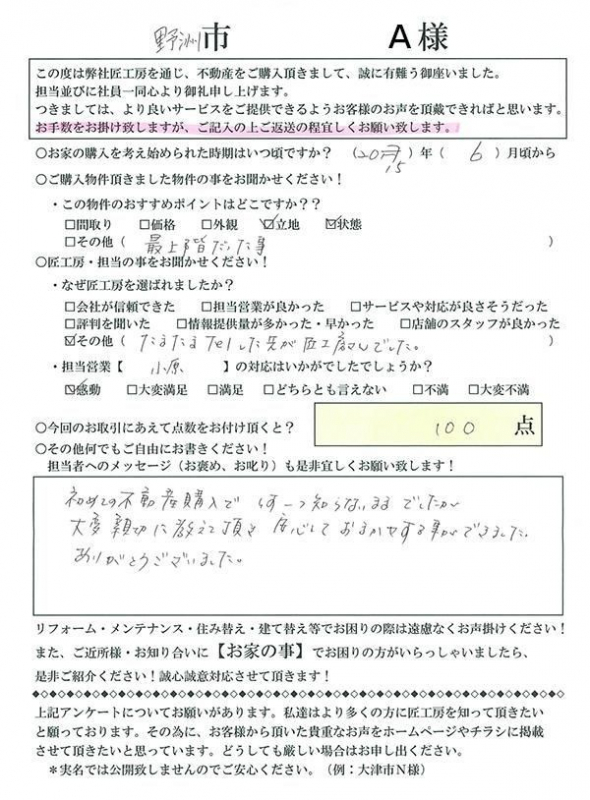 野洲市 A様
この度は弊社匠工房を通じ、不動産をご購入頂きまして、誠に有難う御座いました。
担当並びに社員一同心より御礼申し上げます。
つきましては、より良いサービスをご提供できるようお客様のお声を頂戴できればと思います。
お手数をお掛け致しますが、ご記入の上ご返送の程宜しくお願い致します。
○お家の購入を考え始められた時期はいつ頃ですか？ （2015）年（ 6 ）月頃から
○ご購入物件頂きました物件の事をお聞かせください！
・この物件のおすすめポイントはどこですか？？
□間取り □価格 □外観 ☑立地 ☑状態
□その他（ 最上階だった事 ）
○匠工房・担当の事をお聞かせください！
・なぜ匠工房を選ばれましたか？
□会社が信頼できた □担当営業が良かった □サービスや対応が良さそうだった
□評判を聞いた □情報提供量が多かった・早かった □店舗のスタッフが良かった
☑その他（ たまたまTelした先が匠工房さんでした。 ）
・担当営業【 小原 】の対応はいかがでしたでしょうか？
☑感動 □大変満足 □満足 □どちらとも言えない □不満 □大変不満
○今回のお取引にあえて点数をお付け頂くと？ 100 点
○その他何でもご自由にお書きください！
担当者へのメッセージ（お褒め、お叱り）も是非宜しくお願い致します！
初めての不動産購入で 何一つ知らないままでしたが
大変親切に教えて頂き 安心しておまかせする事ができました。
ありがとうございました。
リフォーム・メンテナンス・住み替え・建て替え等でお困りの際は遠慮なくお声掛けください！
また、ご近所様・お知り合いに【お家の事】でお困りの方がいらっしゃいましたら、
是非ご紹介ください！誠心誠意対応させて頂きます！
上記アンケートについてお願いがあります。私達はより多くの方に匠工房を知って頂きたい
と願っております。その為に、お客様から頂いた貴重なお声をホームページやチラシに掲載
させて頂きたいと思っています。どうしても厳しい場合はお申し出ください。
＊実名では公開致しませんのでご安心ください。（例：大津市N様）